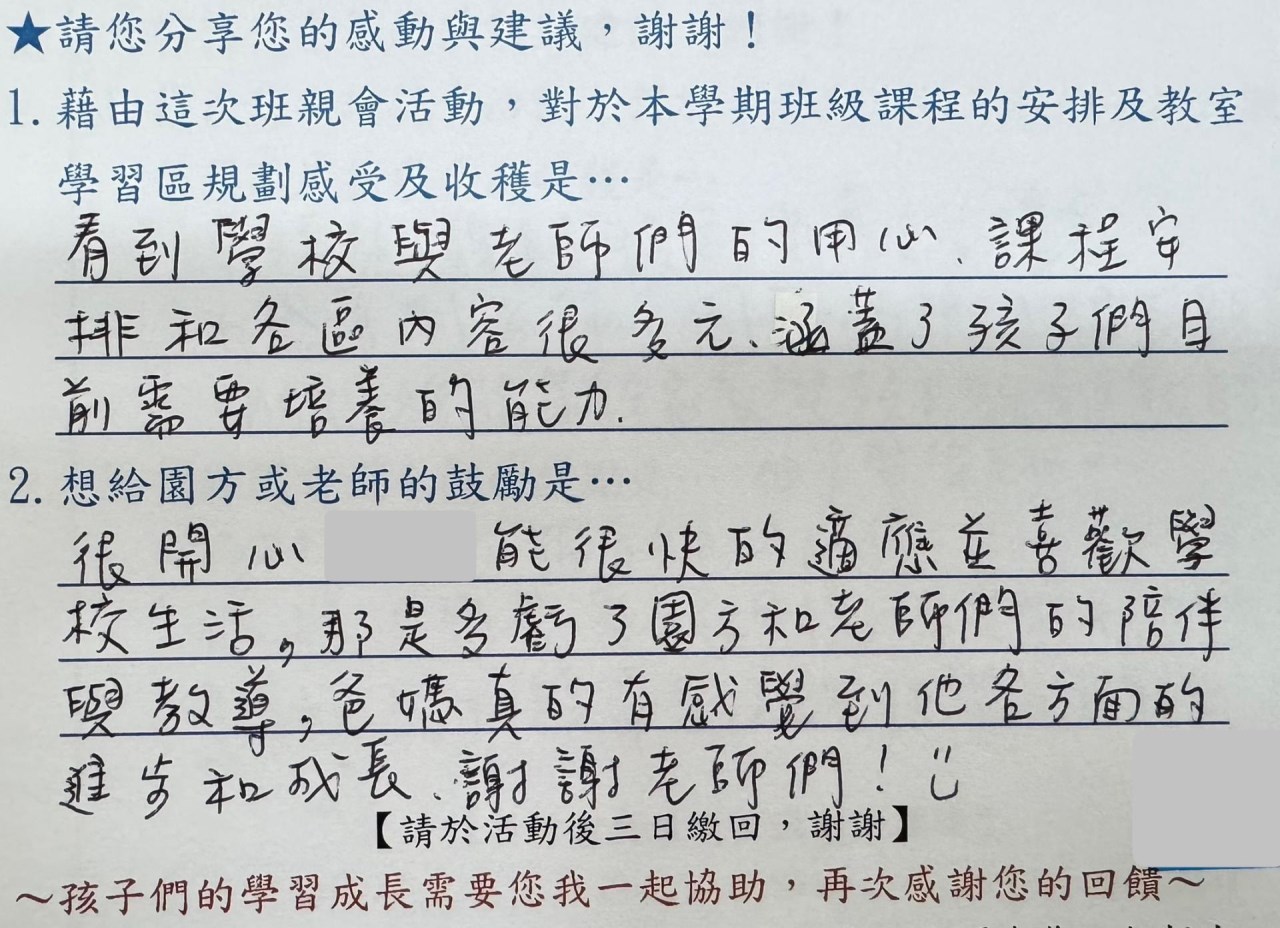 ★請您分享您的感動與建議,謝謝!
1. 藉由這次班親會活動,對於本學期班級課程的安排及教室
學習區規劃感受及收穫是…
看到學校與老師們的用心、課程安
排和各區內容很多元、涵蓋了孩子們目
前需要培養的能力.
2. 想給園方或老師的鼓勵是…
很開心 能很快的適應並喜歡學
校生活,那是多虧了園方和老師們的陪伴
與教導,爸媽真的有感覺到他各方面的
進步和成長、謝謝老師們!
【請於活動後三日繳回,謝謝】
~孩子們的學習成長需要您我一起協助,再次感謝您的回饋~